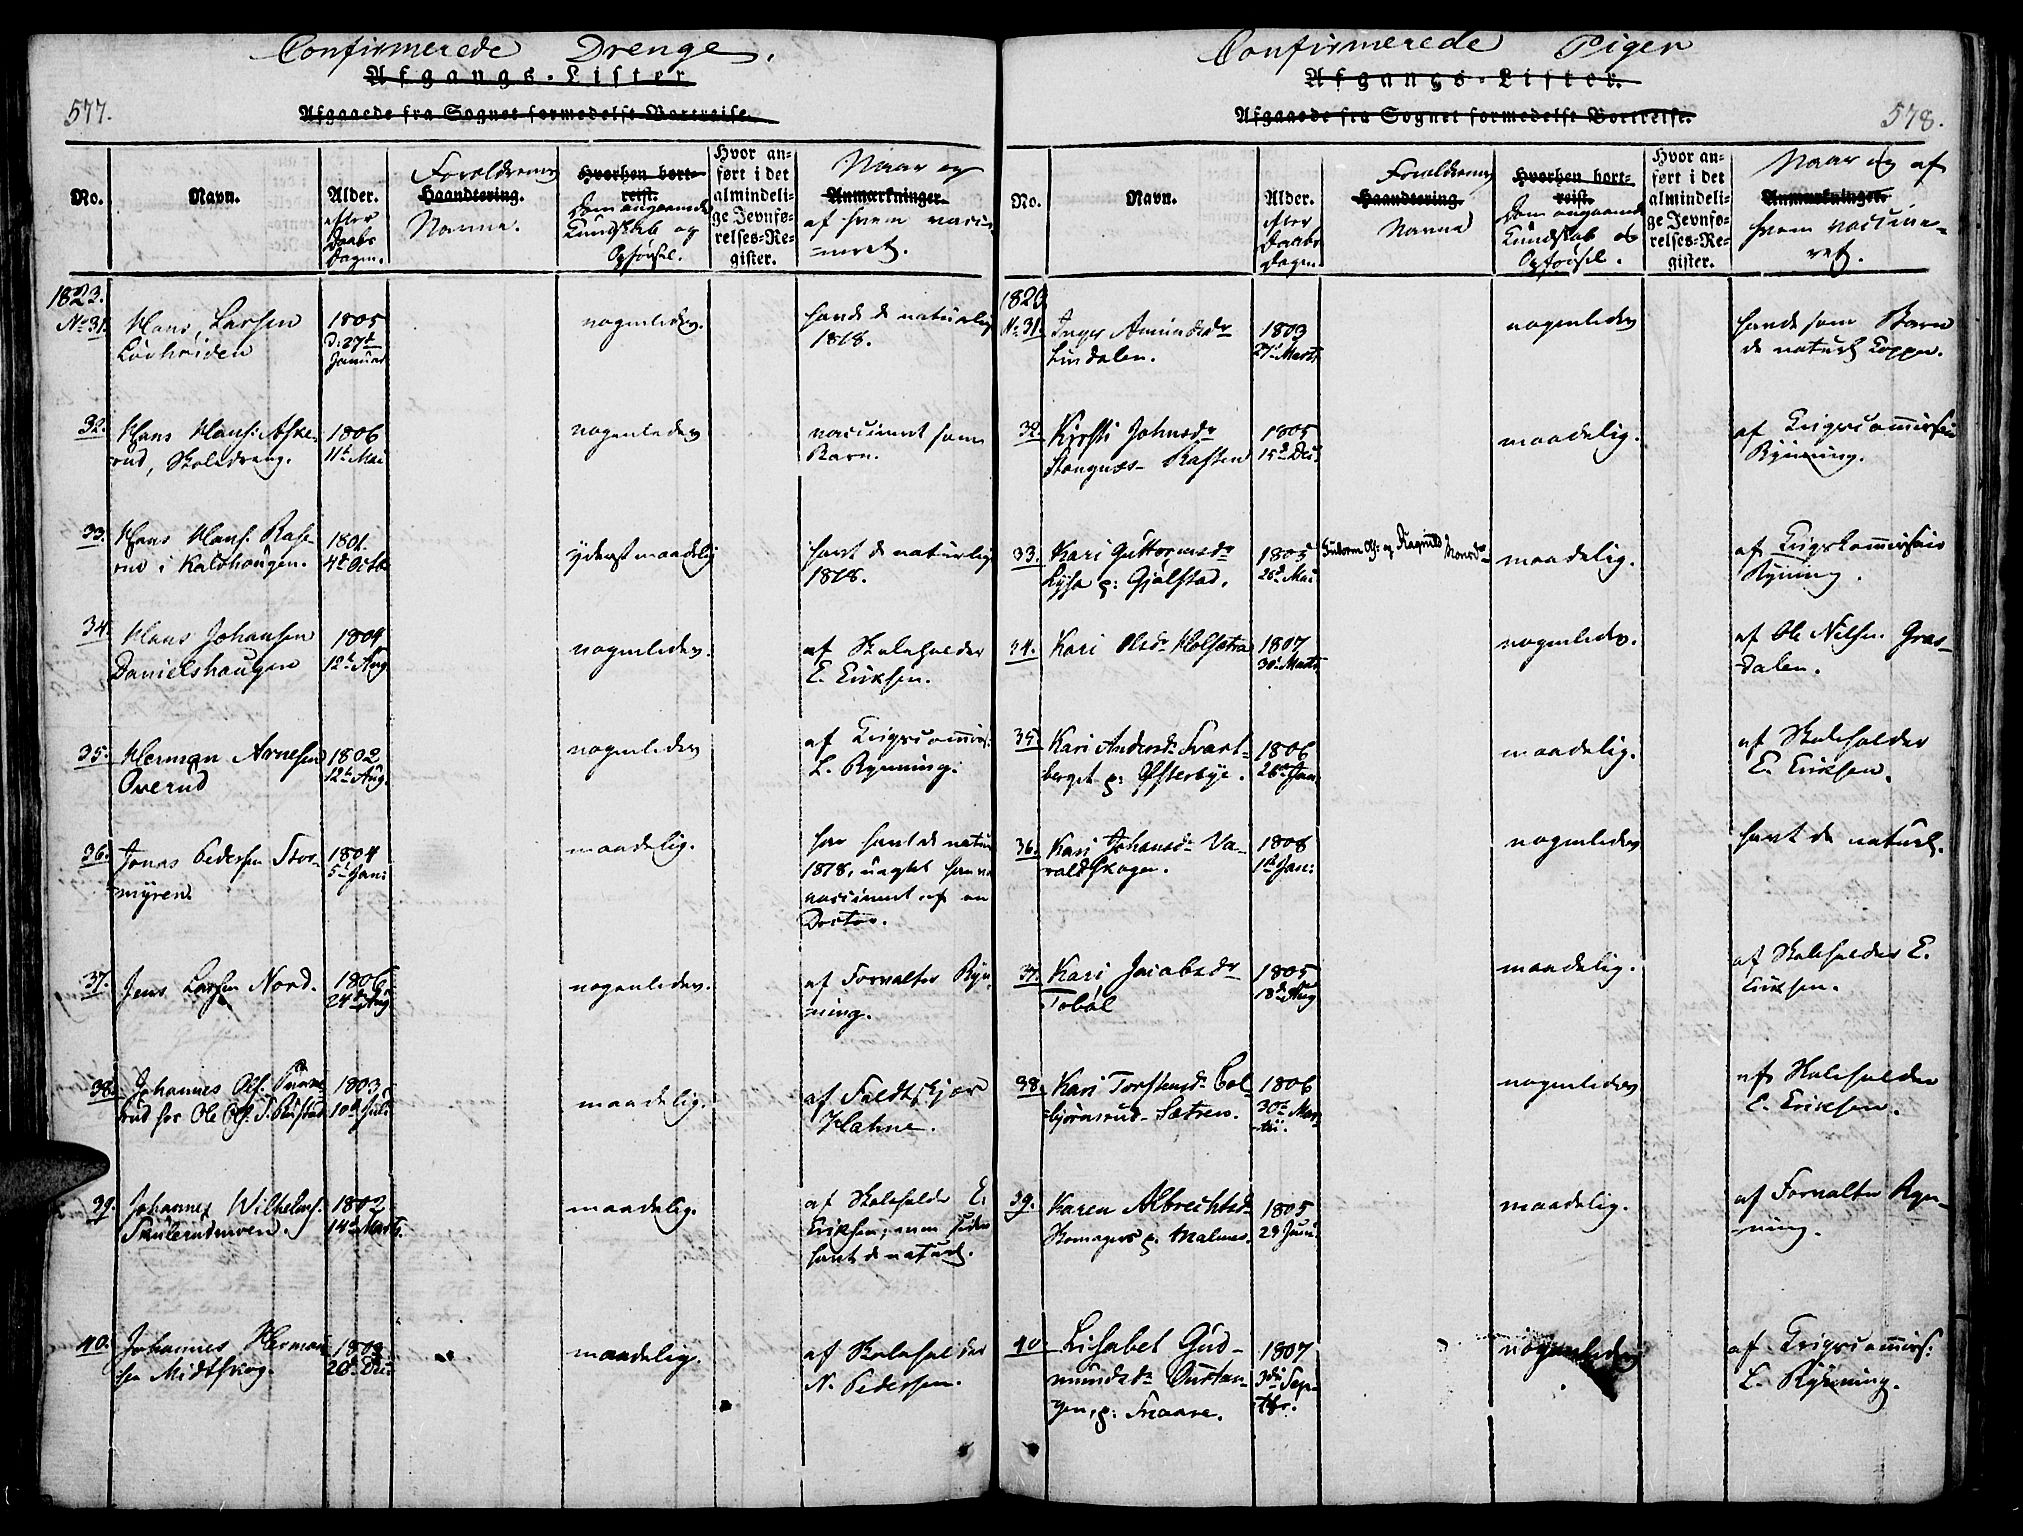 Confirmerede Drenge.
Afgangs-Lister
577.
Afgaaede fra Sognet formedelst Bortreise.
No.
Navn.
Alder.
efter
Daabs
Dagen.
Forældrenes
Haandtering.
Navne.
Hvorhen bort-
reist.
Dom angaaende
Kundskab og
Opførsel.
Hvor an-
ført i det
almindeli-
ge Jevnfø-
relses-Re-
gister.
Naar og
Anmærkninger.
af hvem vacci-
neret.
1823.
No 31.
Hans Larsen
1805
d: 27de
Januar
nogenledes.
havde de naturlige
1818.
32.
Hans Hans: Aske-
rud, Skoledreng.
1806
11te Mai
nogenledes
vaccineret som
Barn.
33.
Hans Hans: Kase-
rud i Kaldhaugen.
1801.
4de Octb
yderst maadelig
havt de naturlige
1818.
34.
Hans Johansen
Danielshaugen
1804
12te Aug
nogenledes.
af Skoleholder
E. Eriksen.
35.
Herman Arnesen
Overud
1802
12te Aug.
nogenledes
af Krigscommiss:
L. Rynning.
36.
Jonas Pedersen Stor-
myren.
1804
5te Jan:
maadelig.
har havt de natur
1818, uagtet han var
vaccineret af en
Doctor.
37.
Jens Larsen Nord.
1806
24de Aug
nogenledes.
af Forvalter Ryn-
ning.
38.
Johannes Ols:
rud hos Ole Ols:
1803
10de Juli
maadelig.
af Feldtskjær
Hahne.
39.
Johannes Wilhelms:
1802
14de Marts.
maadelig.
af Skoleholder E.
Eriksen, men siden
havt de naturl.
40.
Johannes Herman-
sen Midtskog.
1803
26de Dec:
maadelig.
af Skoleholder
N. Pedersen.
Confirmerede Piger
Afgangs-Lister.
578.
Afgaaede fra Sognet formedelst Bortreise.
No.
Navn.
Alder.
efter
Daabs
Dagen
Forældrenes
Haandtering.
Navne
Hvorhen bort-
reist.
Dom angaaende
Kundskab og
Opførsel.
Hvor an-
ført i det
almindeli-
ge Jevnfø-
relses-Re-
gister.
Naar og af
Anmærkninger.
hvem vaccine-
ret.
1823
No 31.
Inger Amundsdr
Lindalen.
1803
27de Marts
nogenledes
havde som Barn
de naturl Kopper.
32.
Kirsti Johnsdr
1805
15de Dec.
maadelig.
af Krigscommissair
Rynning.
33.
Kari Guttormsdr
Lysa p: Gjølstad.
1805
26de Mai
Guttorm Ols: og Ragnild
maadelig.
af Krigskommissair
Rynning.
34.
Kari Olsdr Holsætra
1807
30te Marts
nogenledes.
af Ole Nilsen Gras-
dalen.
35.
Kari Andersdr Svart-
berget p: Østerbye.
1806
26de Jan:
maadelig.
af Skoleholder
E. Eriksen.
36.
Kari Johansdr Va-
raldskogen.
1808
1te Jan:
nogenledes
havt de naturl.
37.
Kari Jacobsdr
Tobøl
1805
18de Aug
maadelig.
af Skoleholder E.
Eriksen.
38.
Kari Torstensdr Col-
bjørnsrud Sætren.
1806
30te Mar-
tii.
nogenledes
af Skoleholder
E. Eriksen.
39.
Karen Albrechtsdr
Skomagers p: Malmer.
1805
29 Juni.
maadelig.
af Forvalter Ryn-
ning.
40.
Lisabet Gud-
mundsdr
gen, p: Snaare.
1807
3die Sep-
tbr.
nogenledes
af Krigscommiss:
L. Rynning.